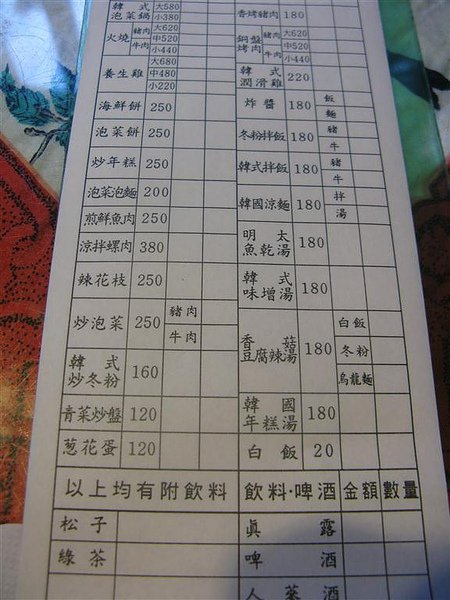 韓式泡菜鍋 大580 小380
火燒 豬肉 牛肉 大620 中520 小440
養生雞 大680 中480 小220
海鮮餅 250
泡菜餅 250
炒年糕 250
泡菜泡麵 200
煎鮮魚肉 250
涼拌螺肉 380
辣花枝 250
炒泡菜 250 豬肉 牛肉
韓式炒冬粉 160
青菜炒盤 120
葱花蛋 120
香烤豬肉 180
銅盤烤肉 豬肉 牛肉 大620 中520 小440
韓式潤滑雞 220
炸醬 180 飯 麵
冬粉拌飯 180 豬 牛
韓式拌飯 180 豬 牛
韓國涼麵 180 拌 湯
明太魚乾湯 180
韓式味增湯 180
香菇豆腐辣湯 180 白飯 冬粉 烏龍麵
韓國年糕湯 180
白飯 20
以上均有附飲料
松子
綠茶
飲料·啤酒 金額 數量
眞露
啤酒
人蔘酒